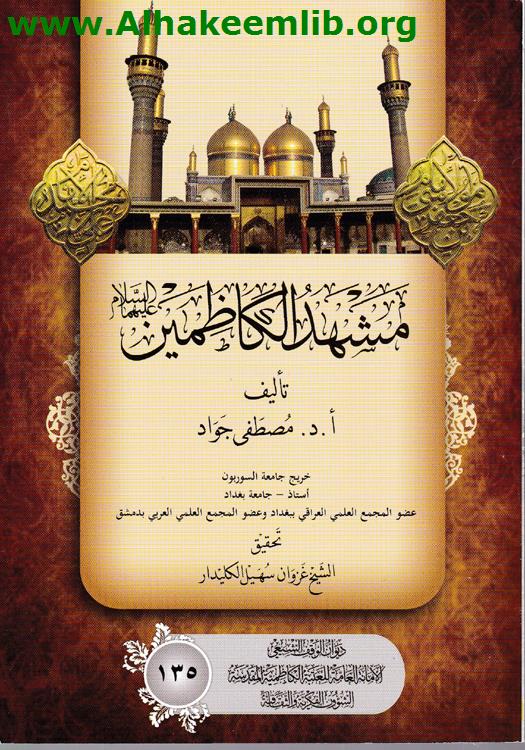 www.Alhakeemlib.org
مشهد الكاظمين عليهما السلام
تأليف
أ.د. مصطفى جواد
خريج جامعة السوربون
أستاذ - جامعة بغداد
عضو المجمع العلمي العراقي ببغداد وعضو المجمع العلمي العربي بدمشق
تحقيق
الشيخ غزوان سهيل الكليدار
ديوان الوقف الشيعي
الأمانة العامة للعتبة الكاظمية المقدسة
الشؤون الفكرية والثقافية
١٣٥